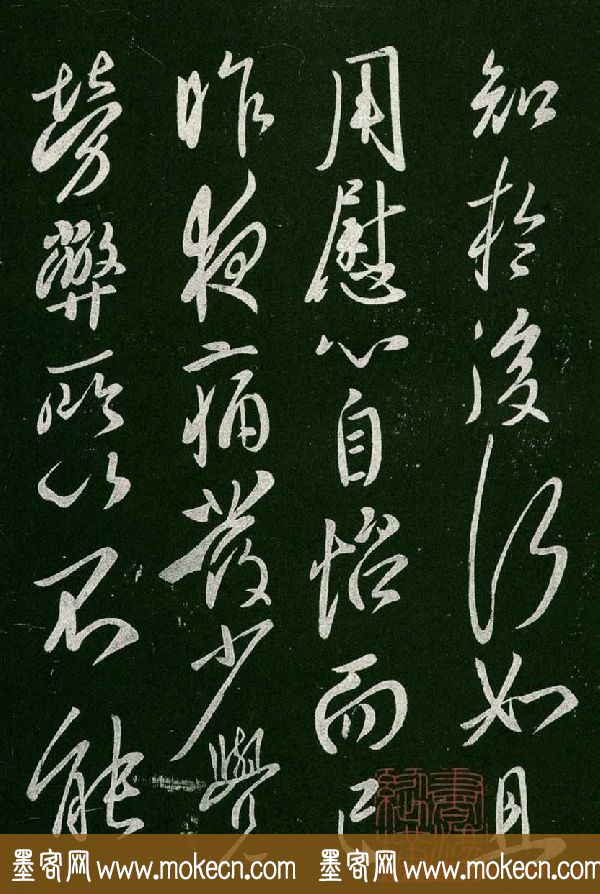 知於後如且
用慰心自怡而已
昨夜痛發少覺
勞弊所以不能
墨客网www.mokecn.com 墨客网www.mokecn.com